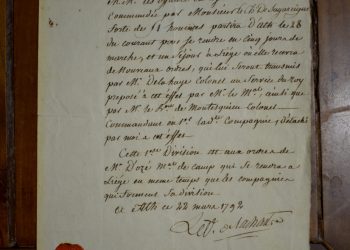 Commandée par Monsieur le
forte de 54 hommes partira d'Ath le 28
du courant pour se rendre en cinq jours de
marche, et un Séjour à Liège où elle recevra
de Nouveaux ordres, qui lui seront transmis
par Mr. De la Haye Colonel au Service du Roy
préposé à cet effet par le Mal; ainsi que
par Mr. le Bon de Montesquieu Colonel
Commandant en 1er la de Compagnie, détaché
par moi à cet effet.
Cette 1ere Division est aux ordres de
Mr. D'ozé Mal de camp qui se rendra à
Liège en même temps que les compagnies
qui forment sa division.
à Ath ce 22 mars 1792